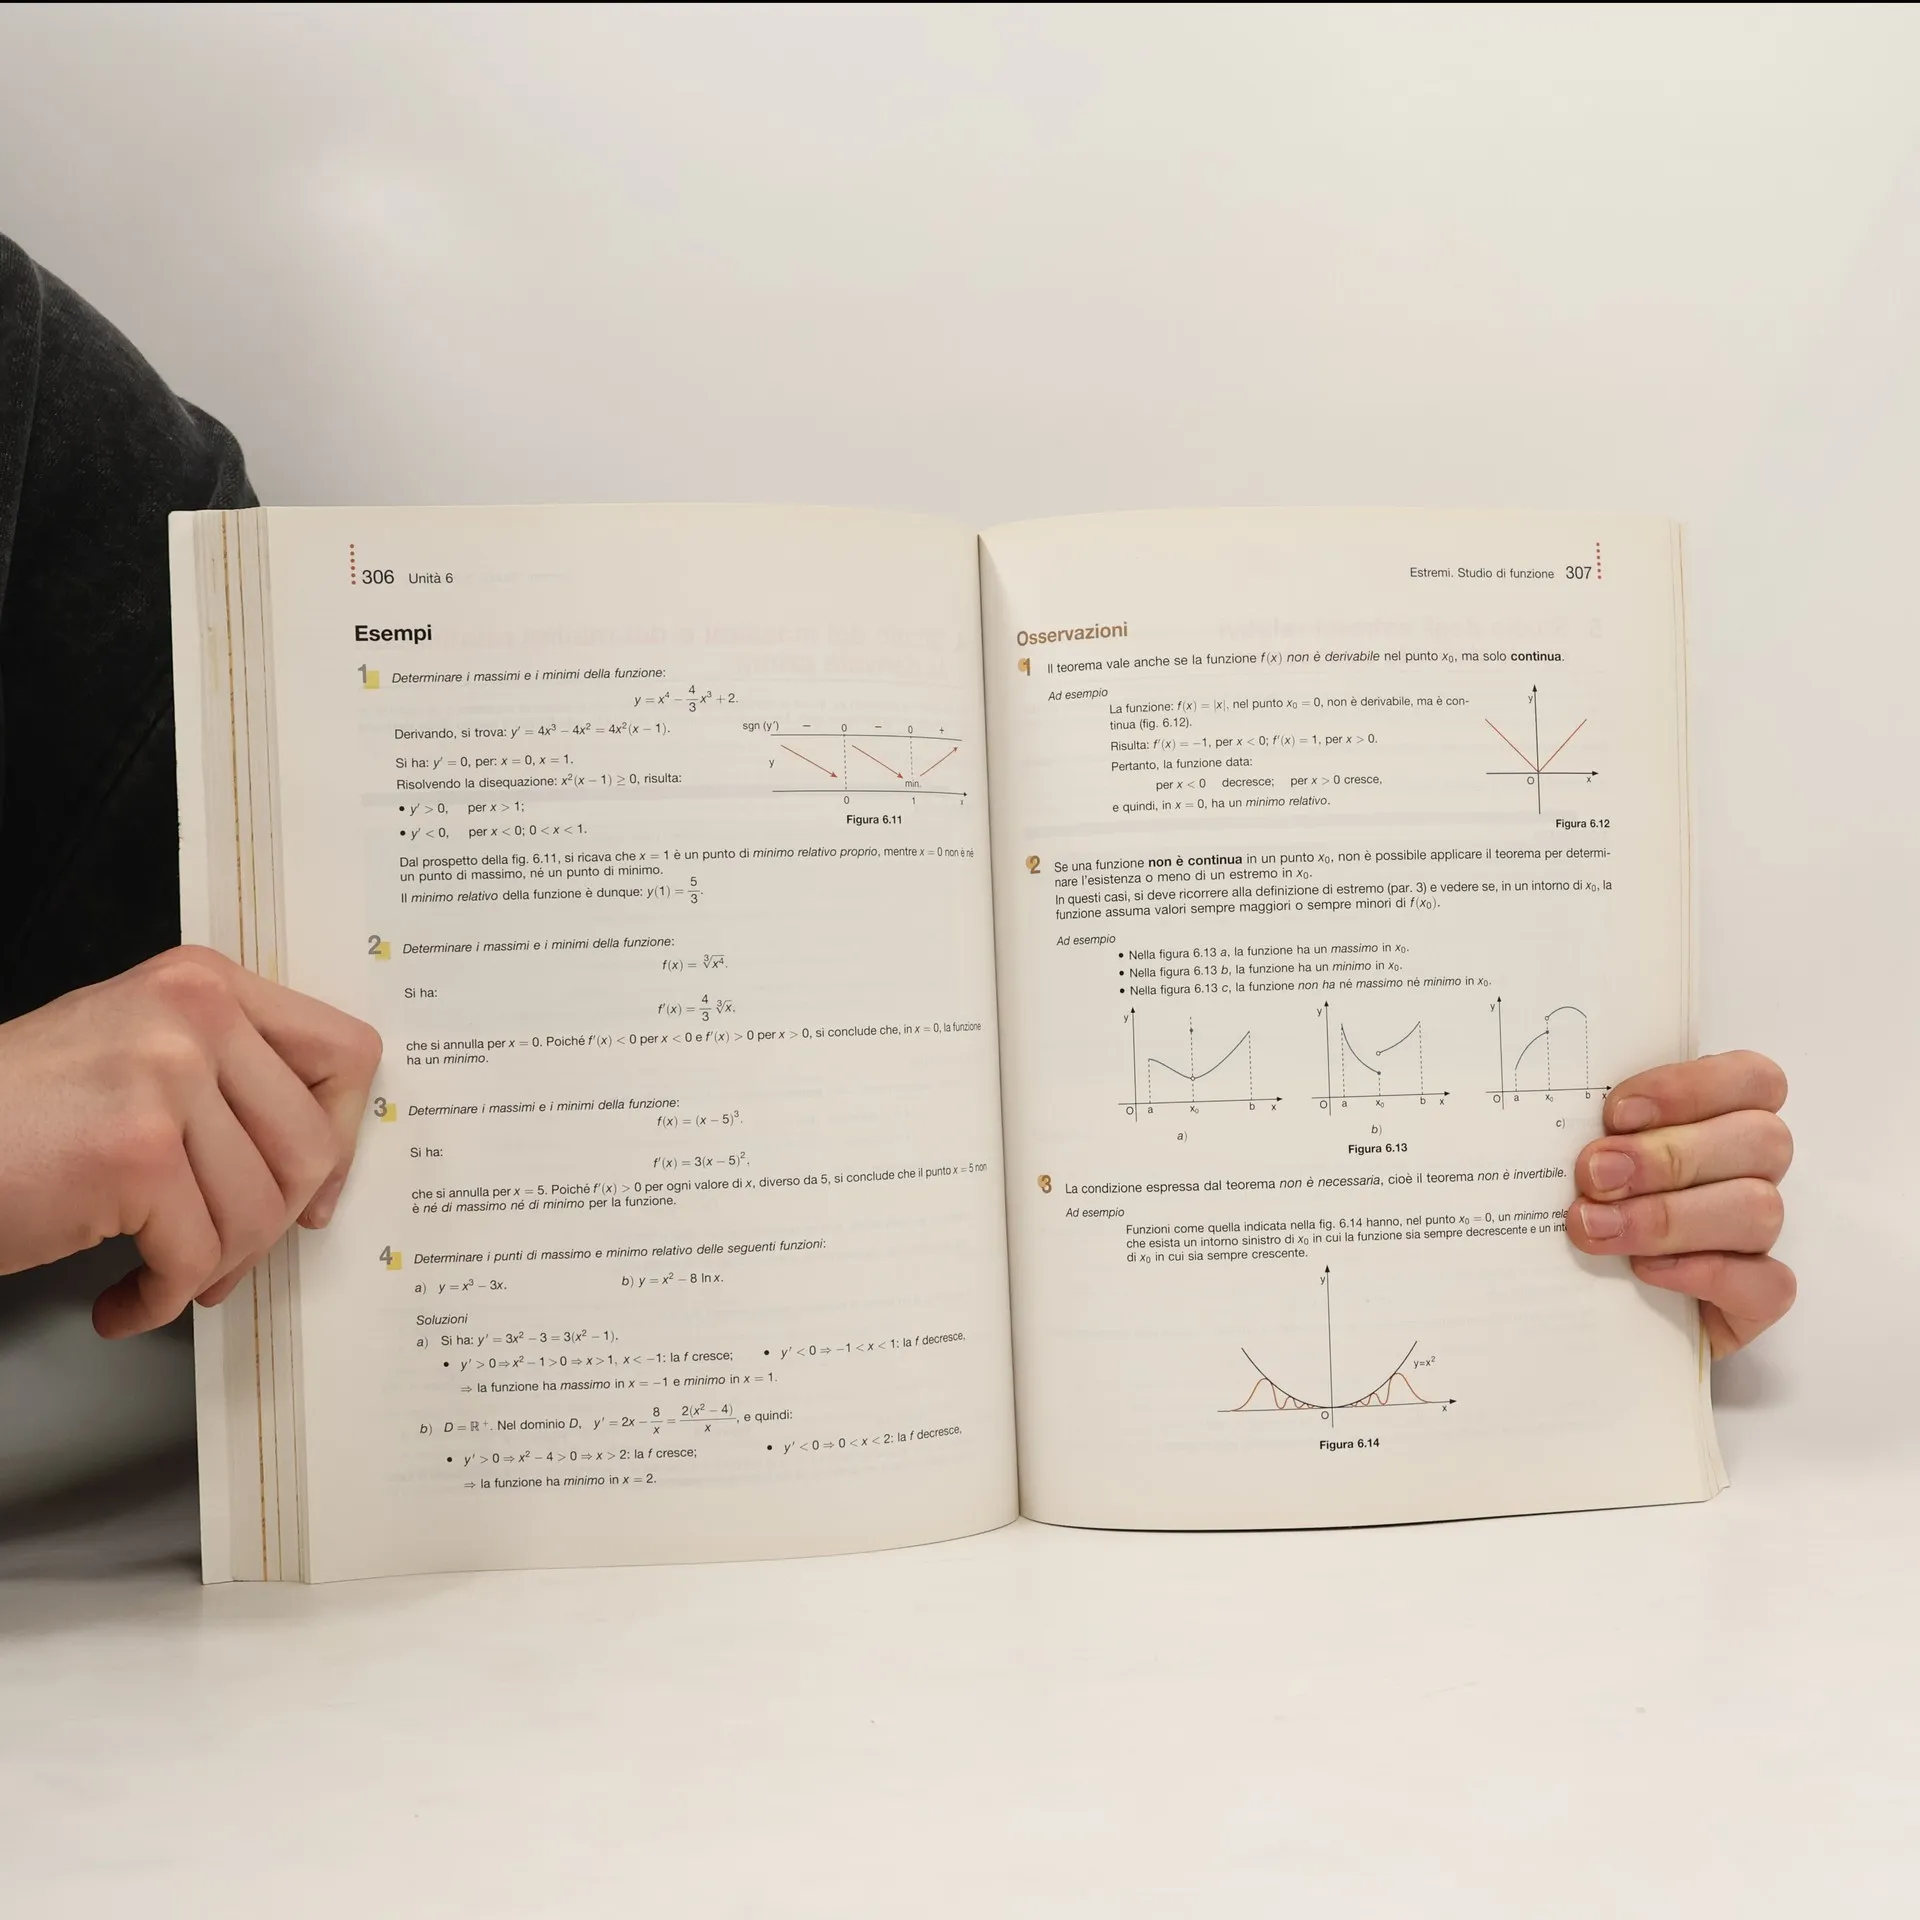 306 Unità 6
Esempi
1 Determinare i massimi e i minimi della funzione:
y = x⁴ − 4/3 x³ + 2.
Derivando, si trova: y′ = 4x³ − 4x² = 4x²(x − 1).
Si ha: y′ = 0, per: x = 0, x = 1.
Risolvendo la disequazione: x²(x − 1) ≥ 0, risulta:
• y′ > 0, per x > 1;
• y′ < 0, per x < 0; 0 < x < 1.
sgn (y′) − 0 − 0 +
y
min.
0 1 x
Figura 6.11
Dal prospetto della fig. 6.11, si ricava che x = 1 è un punto di minimo relativo proprio, mentre x = 0 non è né
un punto di massimo, né un punto di minimo.
Il minimo relativo della funzione è dunque: y(1) = 5/3.
2 Determinare i massimi e i minimi della funzione:
f(x) = ∛x⁴.
Si ha:
f′(x) = 4/3 ∛x,
che si annulla per x = 0. Poiché f′(x) < 0 per x < 0 e f′(x) > 0 per x > 0, si conclude che, in x = 0, la funzione
ha un minimo.
3 Determinare i massimi e i minimi della funzione:
f(x) = (x − 5)³.
Si ha:
f′(x) = 3(x − 5)²,
che si annulla per x = 5. Poiché f′(x) > 0 per ogni valore di x, diverso da 5, si conclude che il punto x = 5 non
è né di massimo né di minimo per la funzione.
4 Determinare i punti di massimo e minimo relativo delle seguenti funzioni:
a) y = x³ − 3x. b) y = x² − 8 ln x.
Soluzioni
a) Si ha: y′ = 3x² − 3 = 3(x² − 1).
• y′ > 0 ⇒ x² − 1 > 0 ⇒ x > 1, x < −1: la f cresce; • y′ < 0 ⇒ −1 < x < 1: la f decresce,
⇒ la funzione ha massimo in x = −1 e minimo in x = 1.
b) D = ℝ⁺. Nel dominio D, y′ = 2x − 8/x = 2(x² − 4)/x, e quindi:
• y′ > 0 ⇒ x² − 4 > 0 ⇒ x > 2: la f cresce; • y′ < 0 ⇒ 0 < x < 2: la f decresce,
⇒ la funzione ha minimo in x = 2.
Estremi. Studio di funzione 307
Osservazioni
1 Il teorema vale anche se la funzione f(x) non è derivabile nel punto x₀, ma solo continua.
Ad esempio
La funzione: f(x) = |x|, nel punto x₀ = 0, non è derivabile, ma è con-
tinua (fig. 6.12).
Risulta: f′(x) = −1, per x < 0; f′(x) = 1, per x > 0.
Pertanto, la funzione data:
per x < 0 decresce; per x > 0 cresce,
e quindi, in x = 0, ha un minimo relativo.
y
O x
Figura 6.12
2 Se una funzione non è continua in un punto x₀, non è possibile applicare il teorema per determi-
nare l'esistenza o meno di un estremo in x₀.
In questi casi, si deve ricorrere alla definizione di estremo (par. 3) e vedere se, in un intorno di x₀, la
funzione assuma valori sempre maggiori o sempre minori di f(x₀).
Ad esempio
• Nella figura 6.13 a, la funzione ha un massimo in x₀.
• Nella figura 6.13 b, la funzione ha un minimo in x₀.
• Nella figura 6.13 c, la funzione non ha né massimo né minimo in x₀.
y y y
O a x₀ b x O a x₀ b x O a x₀ b x
a) b) c)
Figura 6.13
3 La condizione espressa dal teorema non è necessaria, cioè il teorema non è invertibile.
Ad esempio
Funzioni come quella indicata nella fig. 6.14 hanno, nel punto x₀ = 0, un minimo rela
che esista un intorno sinistro di x₀ in cui la funzione sia sempre decrescente e un int
di x₀ in cui sia sempre crescente.
y
y=x²
O x
Figura 6.14